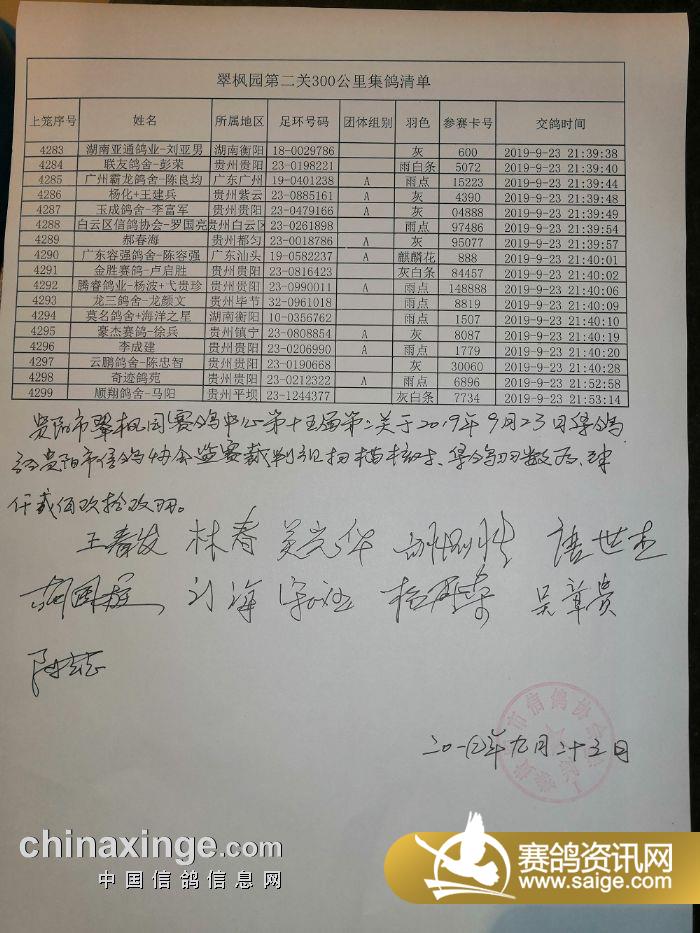 翠枫园第二关300公里集鸽清单
上笼序号 姓名 所属地区 足环号码 团体组别 羽色 参赛卡号 交鸽时间
4283 湖南亚通鸽业-刘亚男 湖南衡阳 18-0029786 灰 600 2019-9-23 21:39:38
4284 联友鸽舍-彭荣 贵州贵阳 23-0198221 雨白条 5072 2019-9-23 21:39:40
4285 广州霸龙鸽舍-陈良均 广东广州 19-0401238 A 雨点 15223 2019-9-23 21:39:44
4286 杨化+王建兵 贵州紫云 23-0885161 A 灰 4390 2019-9-23 21:39:48
4287 玉成鸽舍-李富军 贵州贵阳 23-0479166 A 灰 04888 2019-9-23 21:39:49
4288 白云区信鸽协会-罗国亮 贵州白云区 23-0261898 雨点 97486 2019-9-23 21:39:54
4289 郝春海 贵州都匀 23-0018786 A 灰 95077 2019-9-23 21:39:57
4290 广东容强鸽舍-陈容强 广东汕头 19-0582237 A 麒麟花 888 2019-9-23 21:40:01
4291 金胜赛鸽-卢启胜 贵州贵阳 23-0816423 灰白条 84457 2019-9-23 21:40:02
4292 腾睿鸽业-杨波+弋贵珍 贵州贵阳 23-0990011 A 雨点 148888 2019-9-23 21:40:06
4293 龙三鸽舍-龙颜文 贵州毕节 32-0961018 雨点 8819 2019-9-23 21:40:09
4294 莫名鸽舍+海洋之星 湖南衡阳 10-0356762 雨点 1507 2019-9-23 21:40:10
4295 豪杰赛鸽-徐兵 贵州镇宁 23-0808854 A 灰 8087 2019-9-23 21:40:19
4296 李成建 贵州贵阳 23-0206990 A 雨点 1779 2019-9-23 21:40:20
4297 云鹏鸽舍-陈忠智 贵州贵阳 23-0190668 灰 30060 2019-9-23 21:40:28
4298 奇迹鸽苑 贵州贵阳 23-0212322 A 雨点 6896 2019-9-23 21:52:58
4299 顺翔鸽舍-马阳 贵州平坝 23-1244377 灰白条 7734 2019-9-23 21:53:14
贵阳市翠枫园赛鸽中心第十五届第二关于2019年9月23日集鸽
贵阳市信鸽协会监赛裁判组扫描核对、集鸽羽数为
仟贰佰玖拾玖羽。
王春发 林春 唐世杰
刘海 吴章贵
九月二十三日
市信鸽协会
chinaxinge.com
中国信鸽信息网
赛鸽资讯网
www.saige.com